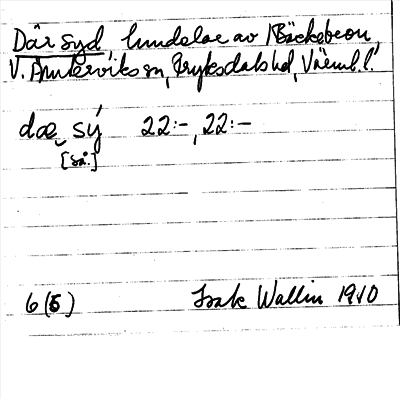 Där syd hundelar av Bäckebron,
V. Ämterviks sn, Fryksdals hd, Värml. l.
dæ sý 22:-, 22:-
[så:]
6(5) Isak Wallin 1910